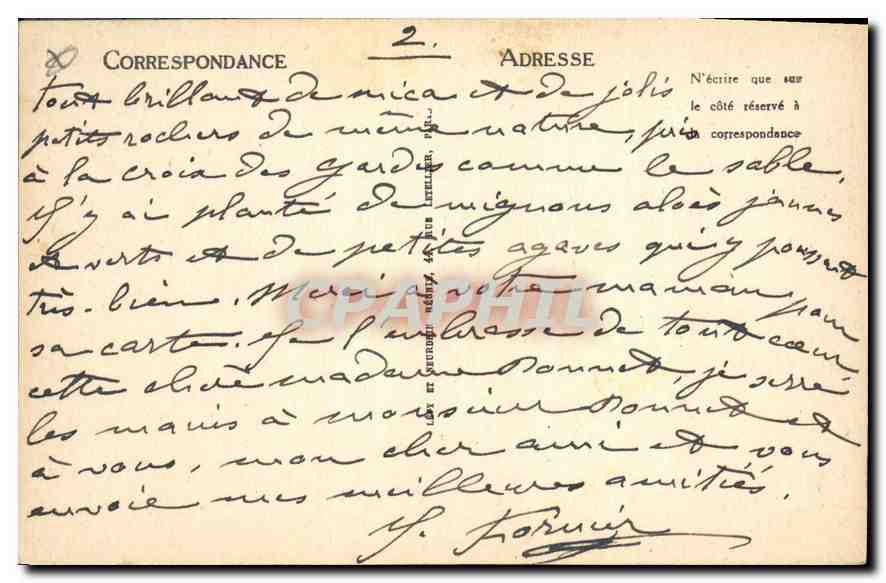 2.
CORRESPONDANCE
ADRESSE
N'écrire que sur
le côté réservé à
la correspondance
tout brillant de mica et de jolis
petits rochers de même nature, pris
à la croix des Gardes comme le sable,
J'y ai planté de mignons aloès jaunes
et verts et de petites agaves qui y poussent
très-bien. Merci à votre maman pour
sa carte. Je l'embrasse de tout cœur
cette chère madame Bonnet, je serre
les mains à monsieur Bonnet et
à vous, mon cher ami et vous
envoie mes meilleures amitiés.
J. Fornier
LEVY ET NEURDEIN RÉUNIS, 44, RUE LETELLIER, PARIS
CPAPHIL